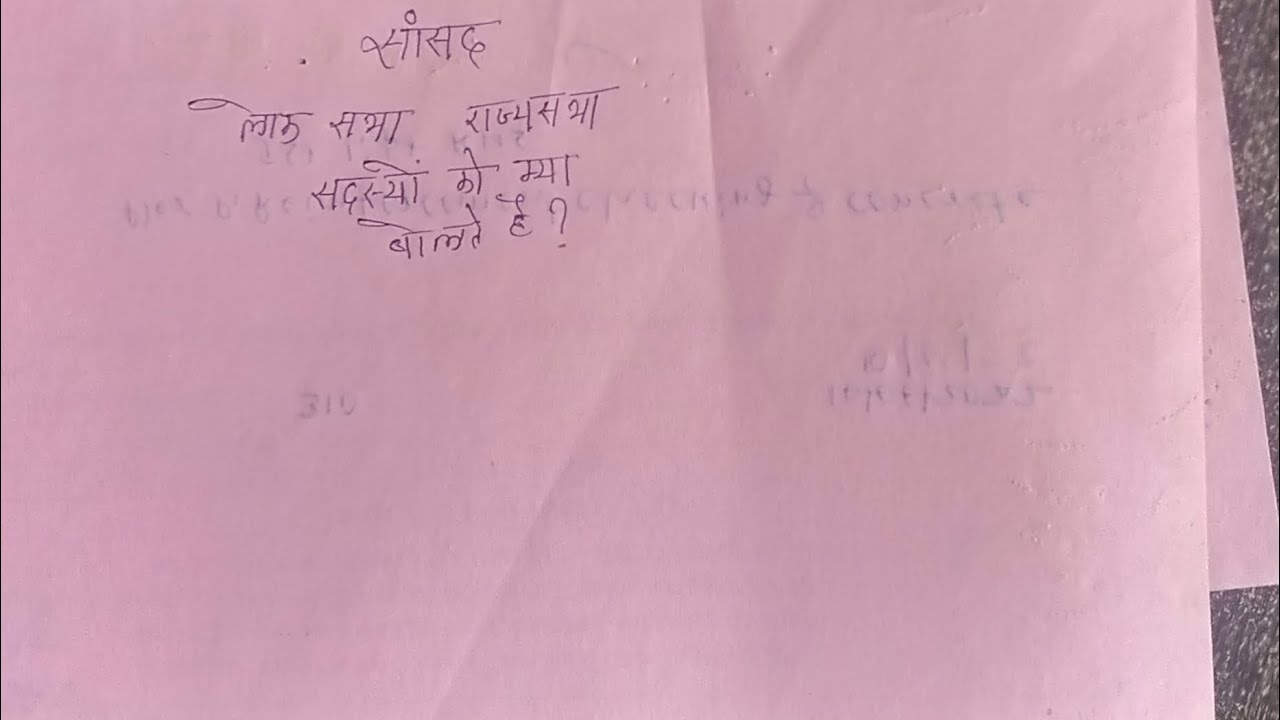 सांसद
लोक सभा राज्यसभा
सदस्यों को क्या
बोलते है?